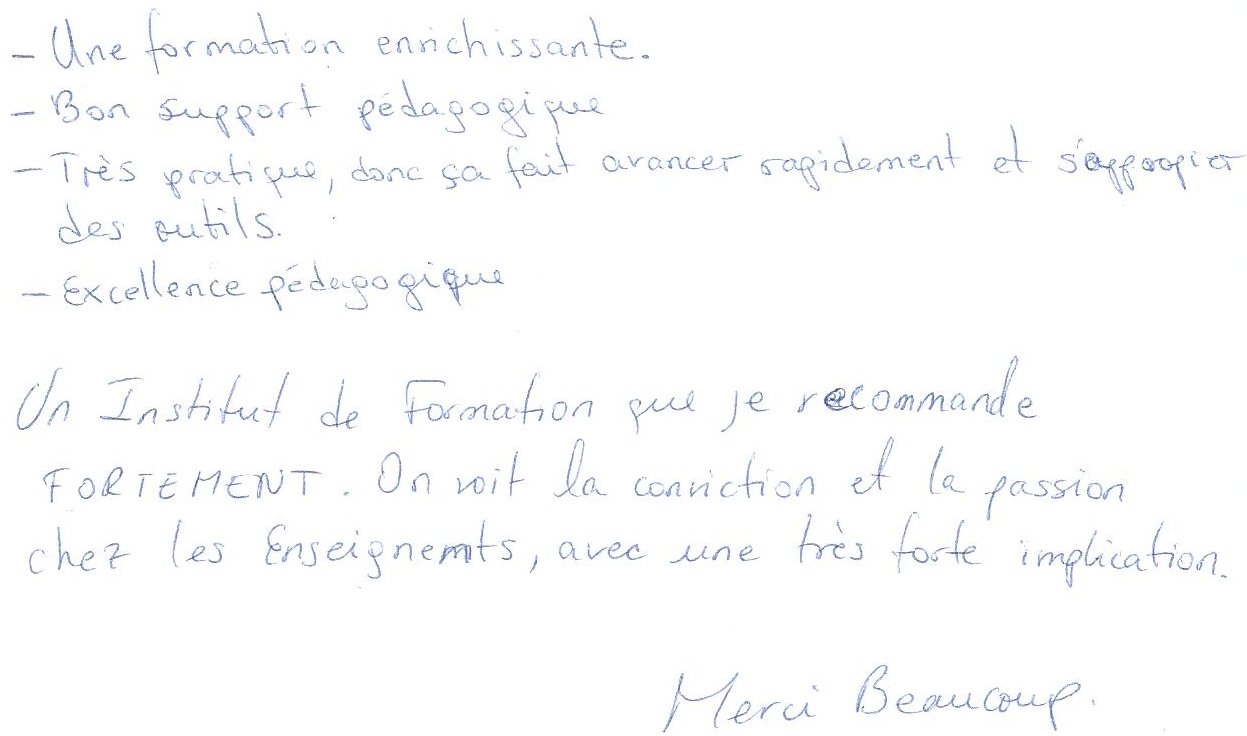 - Une formation enrichissante.
- Bon support pédagogique
- Très pratique, donc ça fait avancer rapidement et s'approprier
des outils.
- Excellence pédagogique
Un Institut de Formation que je recommande
FORTEMENT. On voit la conviction et la passion
chez les Enseignemts, avec une très forte implication.
Merci Beaucoup.